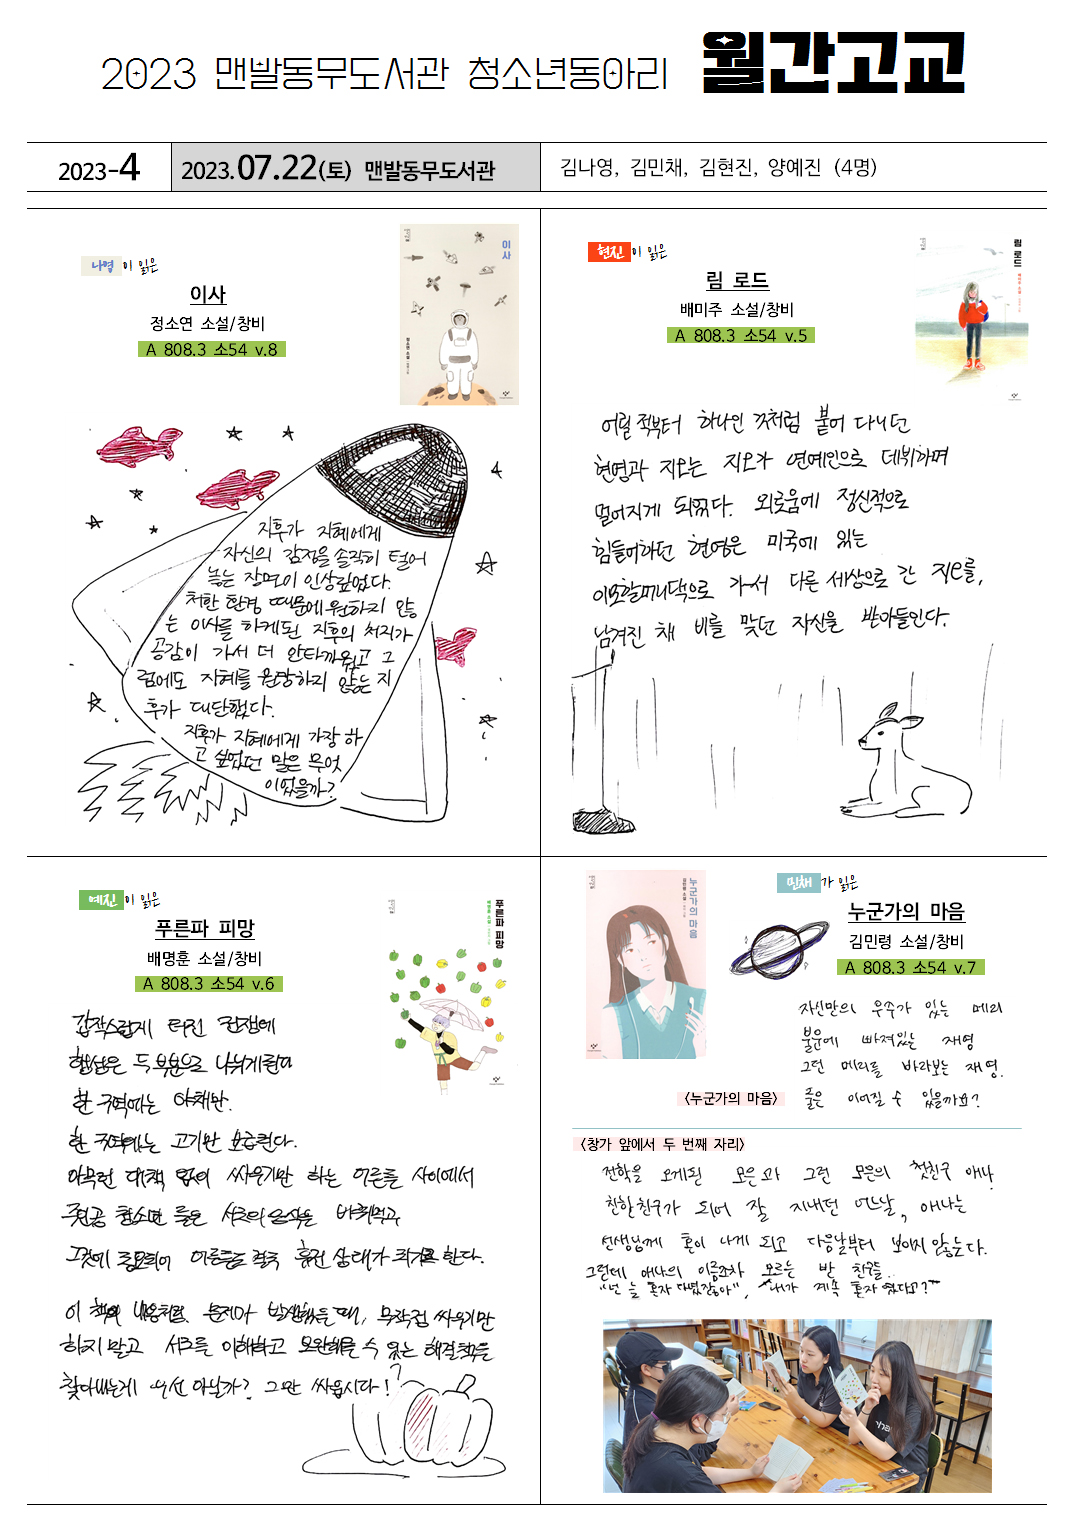 2023 맨발동무도서관 청소년동아리 월간고교
2023-4
2023.07.22(토) 맨발동무도서관
김나영, 김민채, 김현진, 양예진 (4명)
나영이 읽은
이사
정소연 소설/창비
A 808.3 소54 v.8
이사
정소연 소설
지후가 지혜에게
자신의 감정을 솔직히 털어
놓는 장면이 인상깊었다.
처한 환경 때문에 원하지 않
는 이사를 하게된 지후의 처지가
공감이 가서 더 안타까웠고 그
럼에도 지혜를 원망하지 않는 지
후가 대단했다.
지후가 지혜에게 가장 하
고 싶었던 말은 무엇
이었을까?
현진이 읽은
림 로드
배미주 소설/창비
A 808.3 소54 v.5
림 로드
배미주 소설
어릴 적부터 하나인 것처럼 붙어 다니던
현영과 지오는 지오가 연예인으로 데뷔하며
멀어지게 되었다. 외로움에 정신적으로
힘들어하던 현영은 미국에 있는
이모할머니댁으로 가서 다른 세상으로 간 지오를,
남겨진 채 비를 맞던 자신을 받아들인다.
예진이 읽은
푸른파 피망
배명훈 소설/창비
A 808.3 소54 v.6
푸른파 피망
배명훈 소설
갑작스럽게 터진 전쟁에
행성은 두 부분으로 나뉘게된다
한 구역에는 야채만.
한 구역에는 고기만 보급된다.
아무런 대책 없이 싸우기만 하는 어른들 사이에서
주인공 청소년 들은 서로의 음식을 바꿔먹고
그것에 어른들도 결국 휴전 상태가 되기로 한다.
이 책의 내용처럼 문제가 발생했을 때, 무작정 싸우기만
하지 말고 서로를 이해하고 보완해줄 수 있는 해결책을
찾아내는게 우선 아닐까? 그만 싸웁시다!
누군가의 마음
김민령 소설
민채가 읽은
누군가의 마음
김민령 소설/창비
A 808.3 소54 v.7
자신만의 우주가 있는 메리
불운에 빠져있는 재영
그런 메리를 바라보는 재영.
둘은 이어질 수 있을까요?
<누군가의 마음>
<창가 앞에서 두 번째 자리>
전학을 오게된 모은과 그런 모은의 첫친구 애나
친한친구가 되어 잘 지내던 어느날, 애나는
선생님께 혼이 나게 되고 다음날부터 보이지 않는다.
그런데 애나의 이름조차 모르는 반 친구들..
"넌 늘 혼자 다녔잖아", "내가 계속 혼자였다고?"